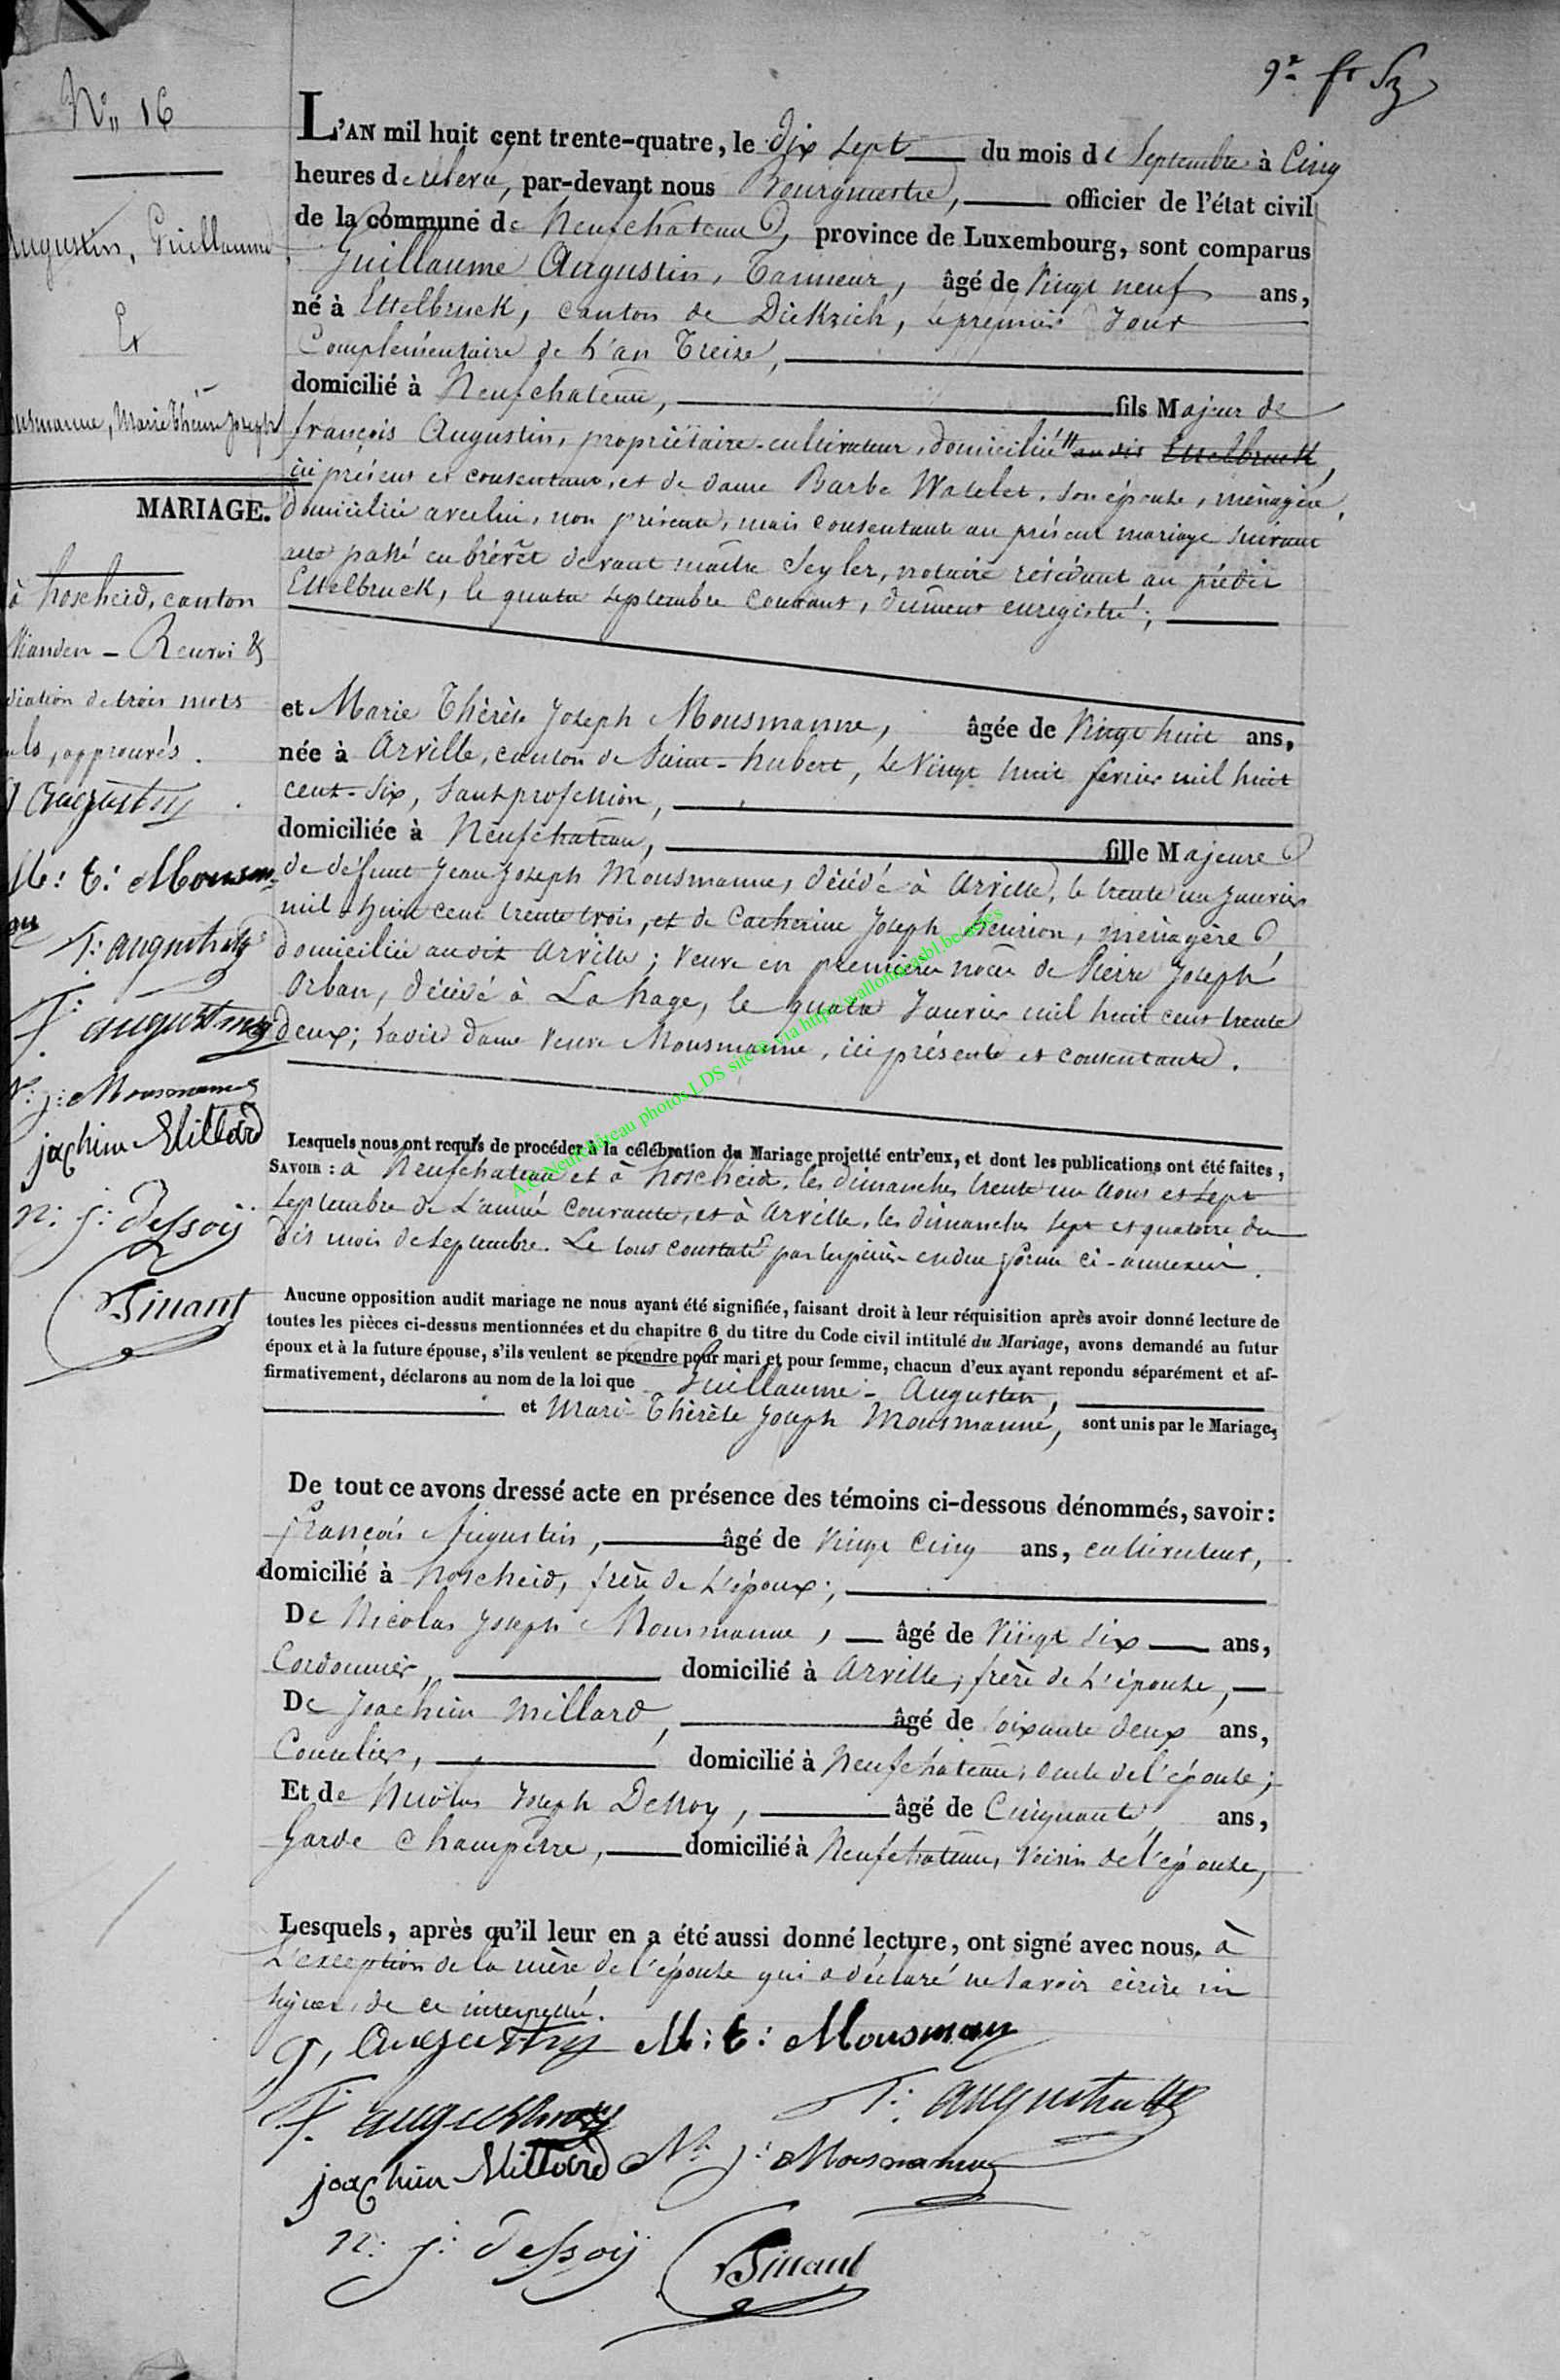 9e fr Sz
N° 16
Augustin, Guillaume
Et
Mousmanne, Marie Thérèse Joseph
MARIAGE.
à hoscheid, canton
Vianden - Renvoi &
radiation de trois mots
nuls, approuvés.
G Augustin
M: t: Mousman
F: augustin
F: augustin
N: j: Mousmanne
joachim Millard
n: j: Dessoÿ
Binant
L'AN mil huit cent trente-quatre, le dix sept du mois de Septembre à Cinq
heures de relevée, par-devant nous Bourgmestre, officier de l'état civil
de la commune de Neufchateau, province de Luxembourg, sont comparus
Guillaume Augustin, Tanneur, âgé de Vingt neuf ans,
né à Ettelbruck, canton de Diekrich, le premier Jour
Complémentaire de l'an Treize,
domicilié à Neufchateau, fils Majeur de
françois Augustin, propriétaire-cultivateur, domicilié au dit Ettelbruck,
ici présent et consentant, et de dame Barbe Watelet, son épouse, ménagère,
domiciliée avec lui, non présente, mais consentante au présent mariage suivant
acte passé en brévèt devant maître Seyler, notaire résidant au prédit
Ettelbruck, le quatre septembre courant, dûment enregistré;
et Marie Thérèse Joseph Mousmanne, âgée de Vingt huit ans,
née à Arville, canton de Saint-hubert, le Vingt huit fevrier mil huit
cent-six, sans profession,
domiciliée à Neufchateau, fille Majeure
de défunt Jean Joseph Mousmanne, décédé à Arville, le trente un Janvier
mil huit cent trente trois, et de Catherine Joseph henrion, ménagère
domiciliée audit Arville; Veuve en premières nôces de Pierre Joseph
Orban, décédé à Lahage, le quatre Janvier mil huit cent trente
deux; Ladite dame Veuve Mousmanne, ici présente et consentante.
Lesquels nous ont requis de procéder à la célébration du Mariage projetté entr'eux, et dont les publications ont été faites,
SAVOIR: à Neufchateau et à hoscheid, les dimanches trente un Aout et sept
Septembre de L'année courante, et à Arville, les dimanches sept et quatorze du
dit mois de Septembre. Le tout constaté par les pièces en due forme ci-annexées.
Aucune opposition audit mariage ne nous ayant été signifiée, faisant droit à leur réquisition après avoir donné lecture de
toutes les pièces ci-dessus mentionnées et du chapitre 6 du titre du Code civil intitulé du Mariage, avons demandé au futur
époux et à la future épouse, s'ils veulent se prendre pour mari et pour femme, chacun d'eux ayant repondu séparément et af-
firmativement, déclarons au nom de la loi que Guillaume - Augustin,
et Marie Thérèse Joseph Mousmanne, sont unis par le Mariage,
De tout ce avons dressé acte en présence des témoins ci-dessous dénommés, savoir:
François Augustin, âgé de Vingt Cinq ans, cultivateur,
domicilié à hoscheid, frère de L'époux;
De Nicolas Joseph Mousmanne, âgé de Vingt six ans,
Cordonnier, domicilié à Arville, frère de L'épouse,
De Joachim Millard, âgé de soixante deux ans,
Courrelier, domicilié à Neufchateau, oncle de l'épouse;
Et de Nicolas Joseph Dessoy, âgé de Cinquante ans,
Garde Champêtre, domicilié à Neufchateau, Voisin de l'épouse,
Lesquels, après qu'il leur en a été aussi donné lecture, ont signé avec nous, à
L'exception de la mère de l'épouse qui a déclaré ne savoir écrire ni
signer, de ce interpellée.
G, Augustin M: t: Mousman
F. augustin F: augustin
joachim Millard N: j: Mousmanne
n: j: Dessoÿ Binant